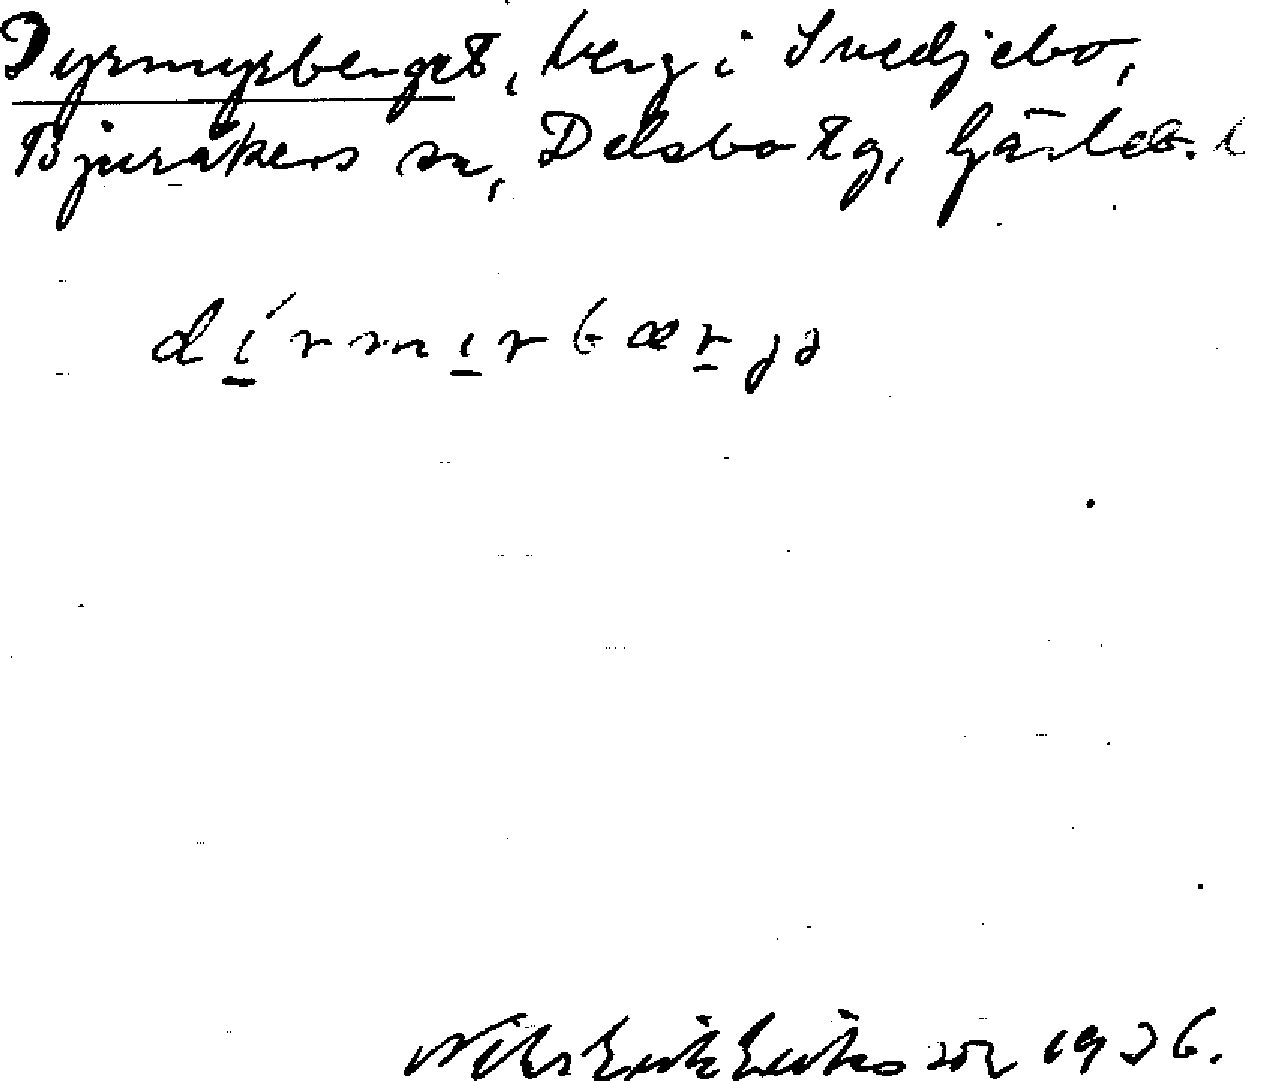 Dyrmyrberget, berg i Svedjebo,
Bjuråkers sn, Delsbo tg, Gävleb. l
dí̱rmi̱rbæṟjə
Nils Erik Eriksson 1936.